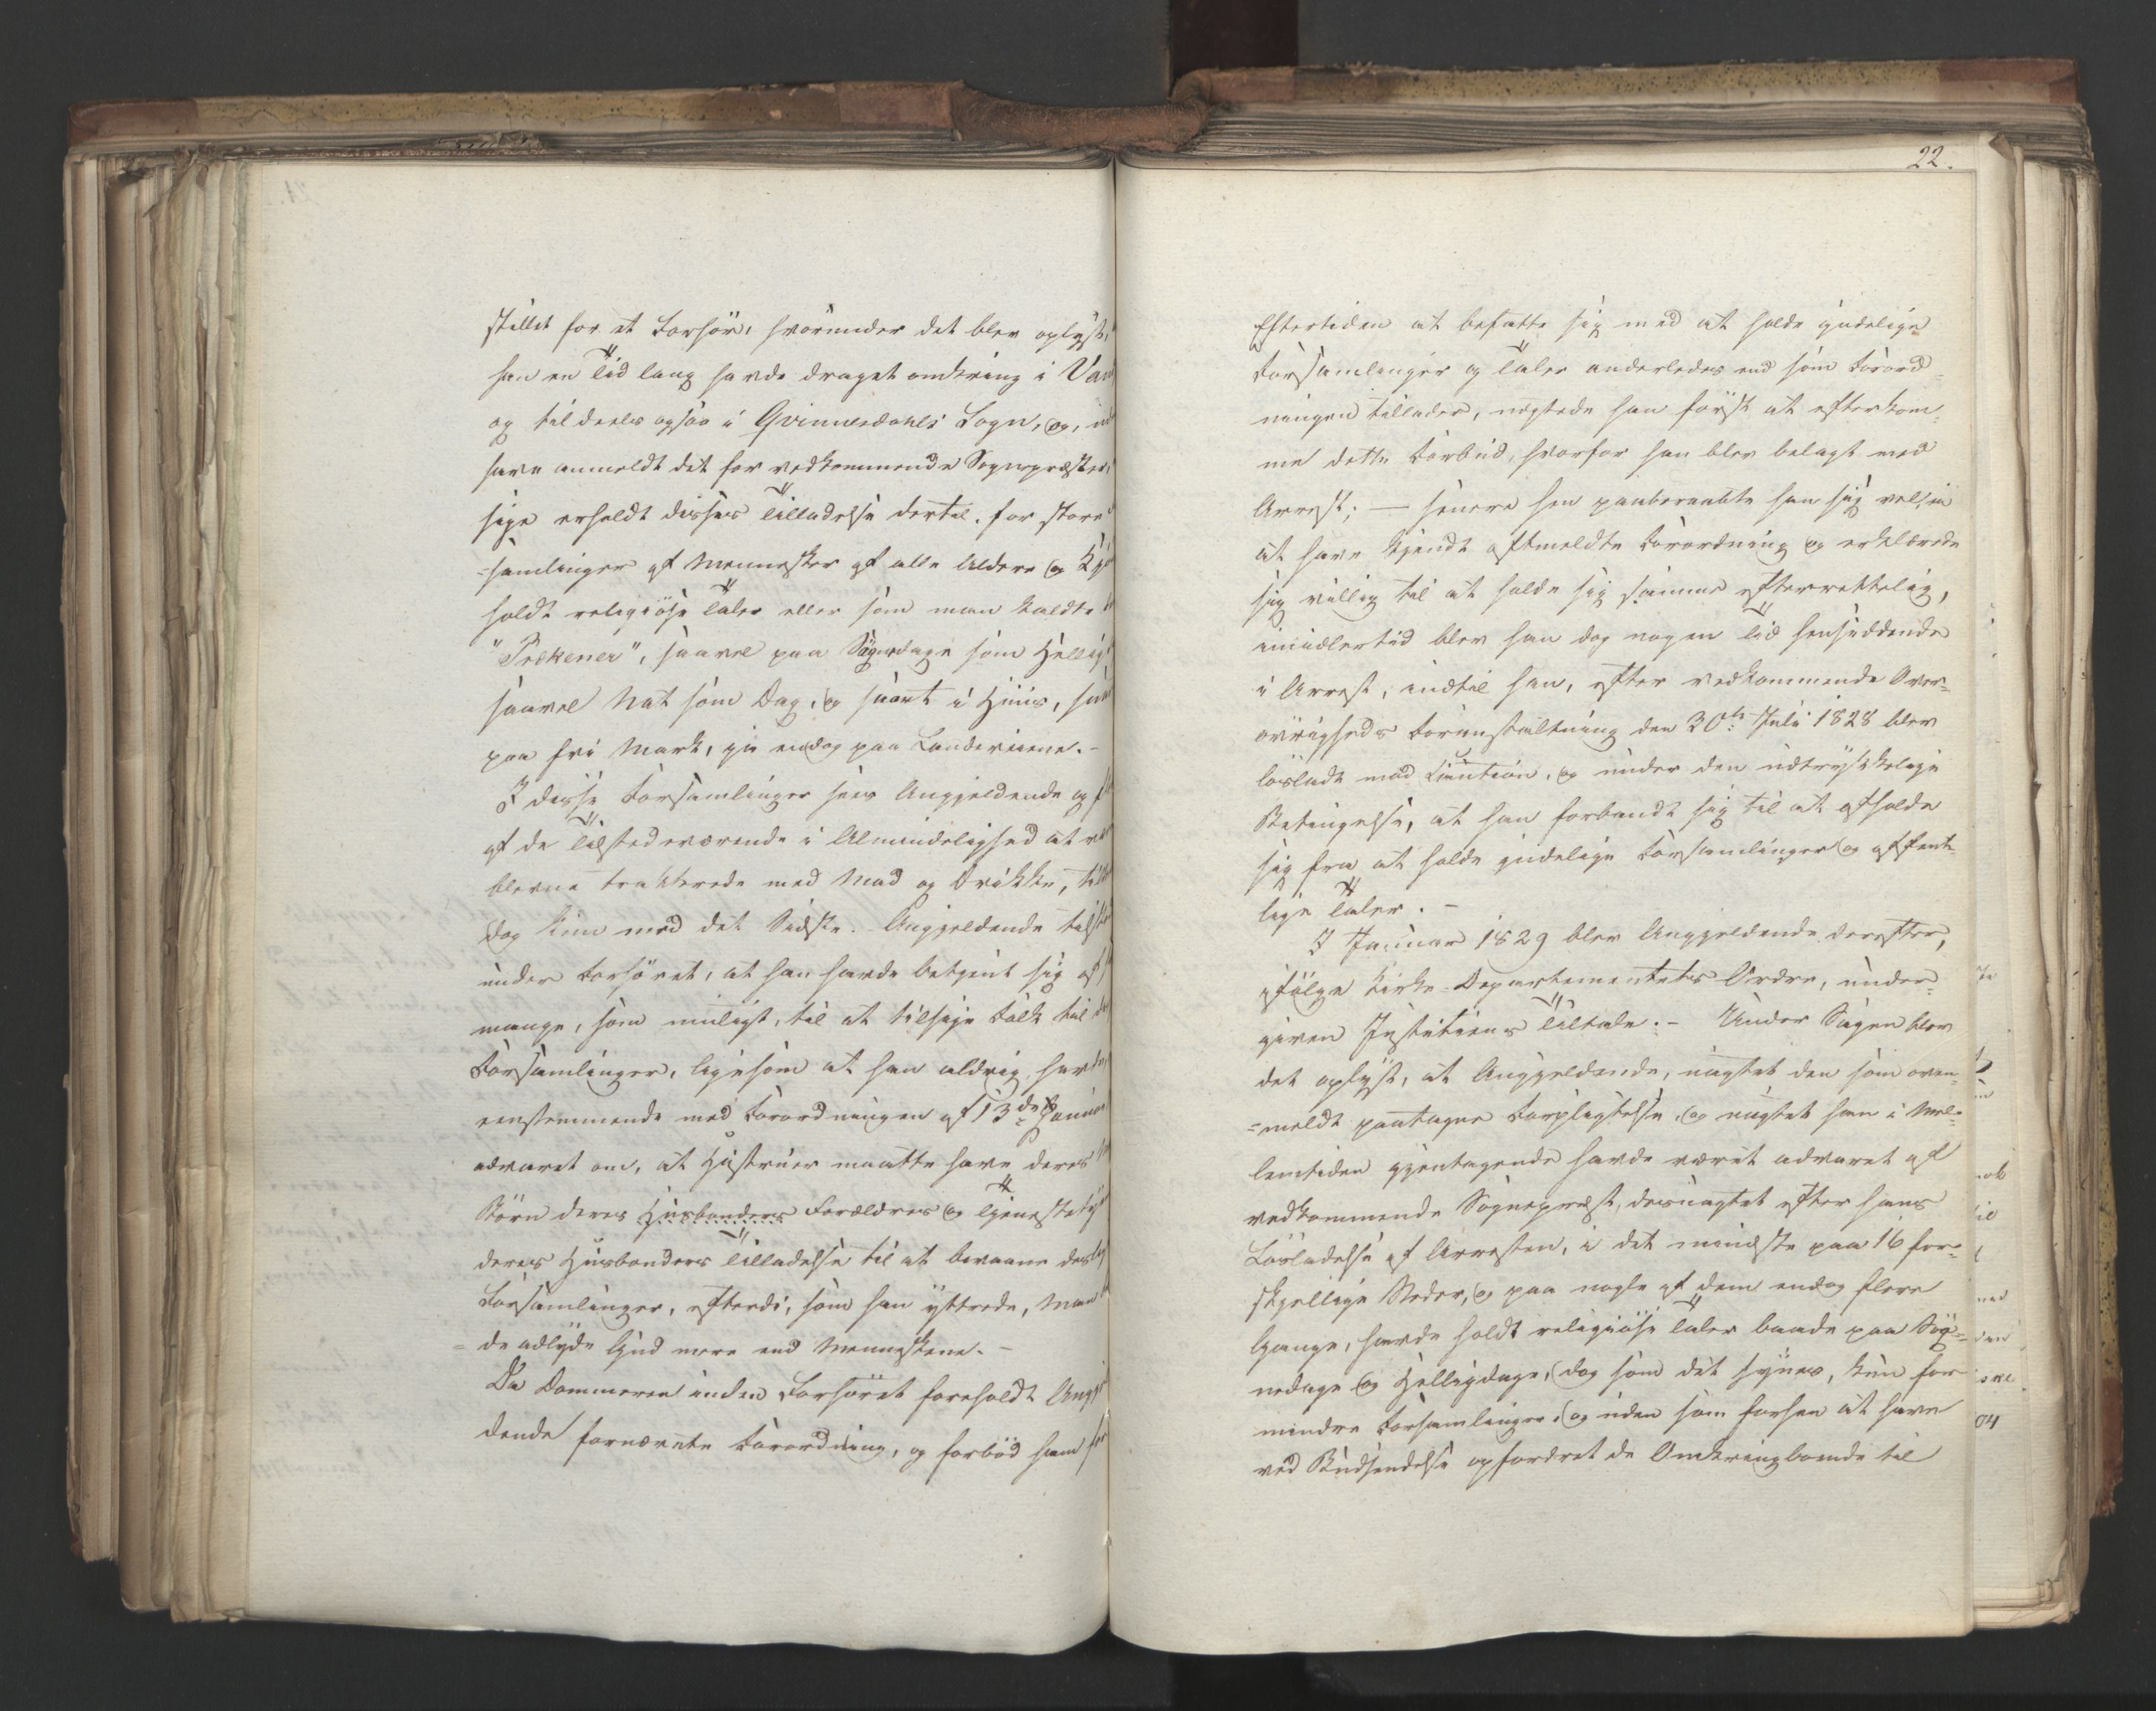 stillet for et Forhör, hvorunder det blev oplyst,
han en Tid lang havde draget omkring i Van
og tildeels ogsaa i Qvinnesdahls Sogn, og,
have anmeldt det for vedkommende Sognepræster,
sige erholdt disses Tilladelse dertil, for store
=samlinger af Mennesker af alle Aldere og Kjö
holdt religiöse Taler eller som man kaldte
"Prekener", saavel paa Sögnedage som Hellig
saavel Nat som Dag, og saavel i Huus, som
paa fri Mark, ja endog paa Landeveiene. –
I disse Forsamlinger sees Angjeldende og
af de Tilstedeværende i Almindelighed at
blevne trakterede med Mad og Drikke,
dog kun med det Sidste. Angjeldende tilst
under Forhöret, at han havde betjent sig af
mange, som muligt, til at tilsige Folk til
Forsamlinger, ligesom at han aldrig havde
eenstemmende med Forordningen af 13de Januar
advaret om, at Hustruer maatte have deres
Börn deres Husbonders Forældres og Tjenestety
deres Husbonders Tilladelse til at bivaane des
Forsamlinger, efterdi, som han yttrede, Man
=de adlyde Gud mere end Menneskene. –
Da Dommeren inden Forhöret foreholdt Angj
dende fornævnte Forordning, og forböd ham for
22.
Eftertiden at befatte sig med at holde gudelige
Forsamlinger og Taler anderledes end som Forord=
ningen tillader, nægtede han först at efterkom=
me dette Forbud, hvorfor han blev belagt med
Arrest; — senere hen paaberaabte han sig vel, ei
at have kjendt oftmeldte Forordning og erklærede
sig villig til at holde sig samme efterrettelig,
imidlertid blev han dog nogen Tid hensiddende
i Arrest, indtil han, efter vedkommende Over=
övrigheds Foranstaltning den 30te Juli 1828 blev
lösladt mod Caution, og under den udtrykkelige
Betingelse, at han forbandt sig til at afholde
sig fra at holde gudelige Forsamlinger og offent=
lige Taler. –
I Januar 1829 blev Angjeldende derefter,
ifölge Kirke-Departementets Ordre, under=
given Justitiens Tiltale. – Under Sagen blev
det oplyst, at Angjeldende, uagtet den som oven=
=meldt paatagne Forpligtelse, og uagtet han i Mel=
lemtiden gjentagende havde været advaret af
vedkommende Sognepræst, desuagtet efter hans
Lösladelse af Arresten, i det mindste paa 16 for=
skjellige Steder, og paa nogle af dem endog flere
Gange, havde holdt religiöse Taler baade paa Sög=
nedage og Helligdage, dog som det synes, kun for
mindre Forsamlinger, og uden som forhen at have
ved Budsendelse opfordret de Omkringboende til